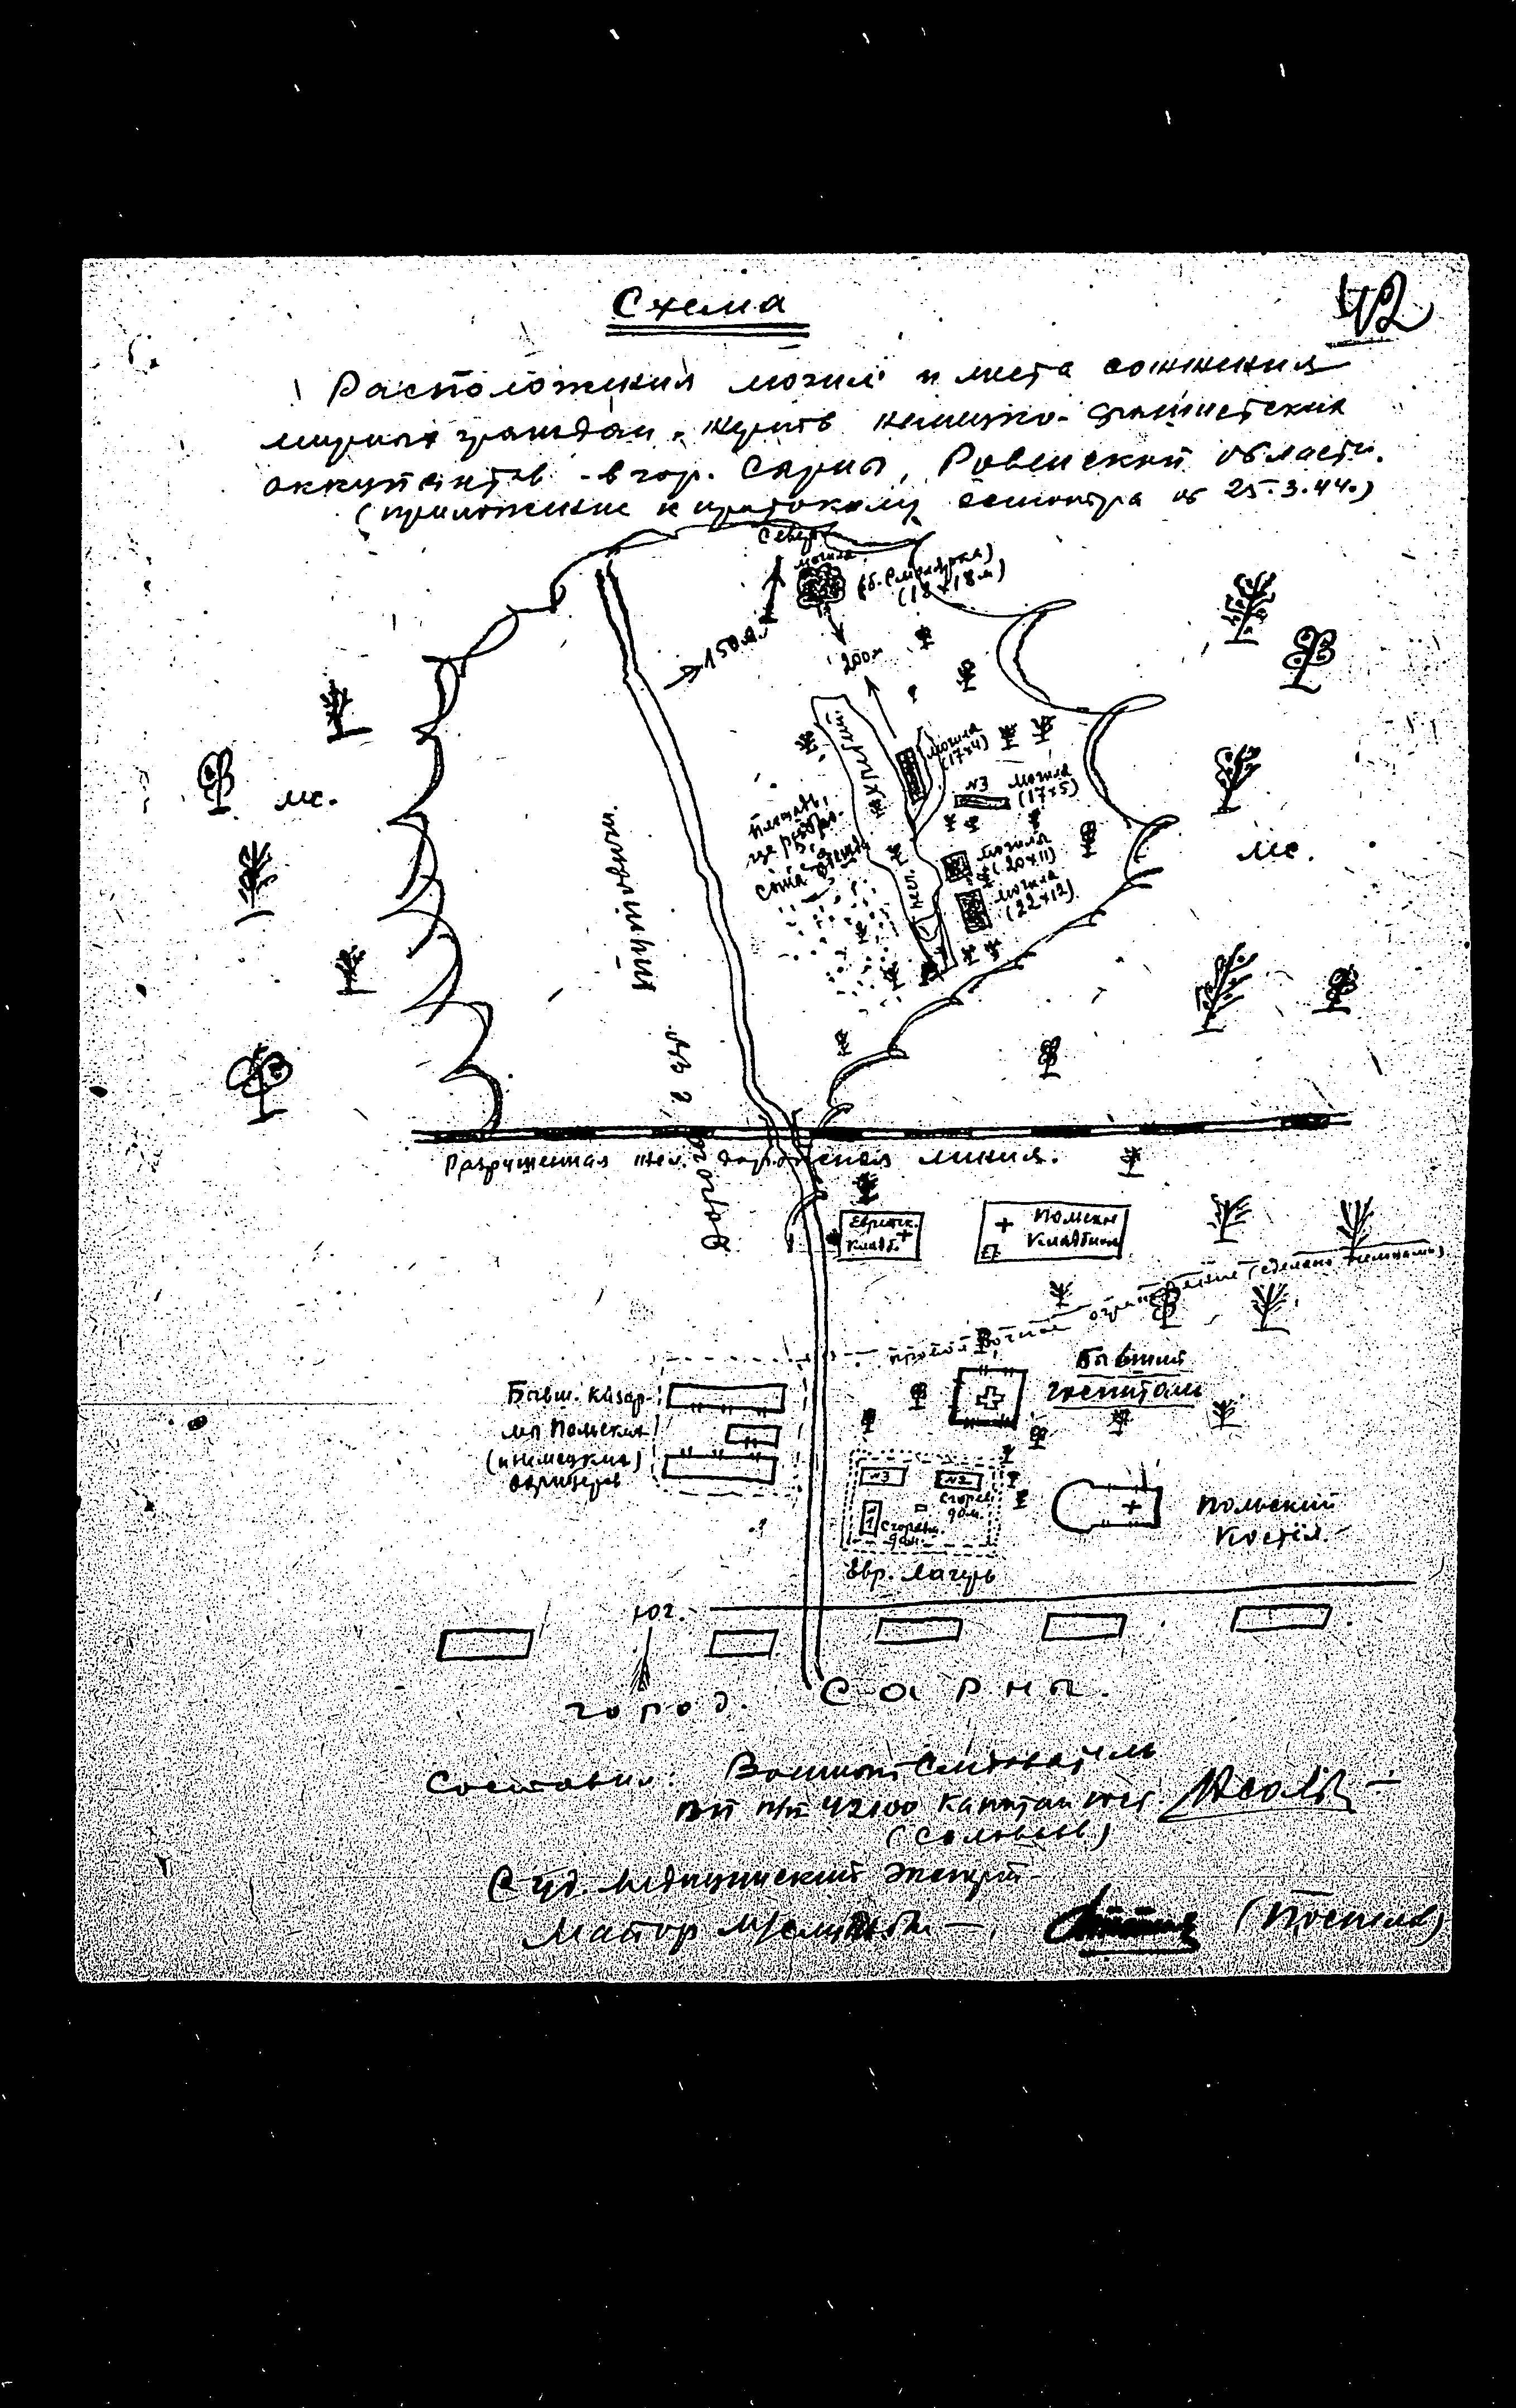 42
Схема
Расположения могил и места сожжения
мирных граждан, жертв немецко-фашистских
оккупантов - в гор. Сарны, Ровенской области.
(приложение к протоколу осмотра от 25.3.44.)
Север
могила
(18 x 18 м)
150 м.
200 м
могила
(17x4)
N3 могила
(17x5)
площадь,
где разбро-
могила
(20x11)
могила
(22x12)
лес.
лес.
Дорога в дер.
Разрушенная жел. дорожная линия.
Еврейск.
кладб.
Польское
кладбище
проволочное ограждение (сделано немцами)
Бывший
госпиталь
Бывш. казар-
мы Польских
(и немецких)
офицеров
N3
N2
сгорев.
дом.
1
сгоревш.
дом.
Евр. лагерь
Польский
костел.
Юг.
город. Сарны.
Составил: Военный следователь
ВП п/п 42100 капитан юст.
(Соловьев)
Суд. медицинский эксперт
Майор медслужбы